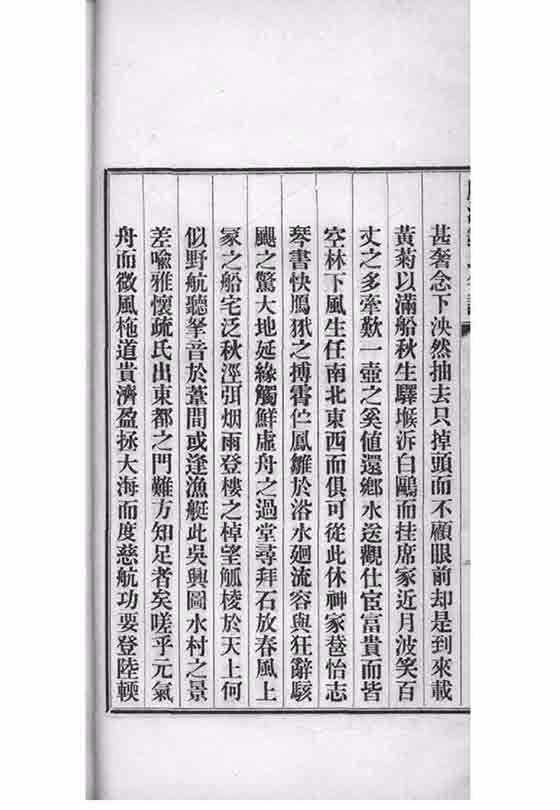 甚奢念下泱然抽去只掉頭而不顧眼前却是到來載
黃菊以滿船秋生驛堠泝白鷗而挂席家近月波笑百
丈之多牽歎一壺之奚值還鄉水送觀仕宦富貴而皆
空林下風生任南北東西而俱可從此休神家衖怡志
琴書快鵰狘之搏霄伫鳳雛於浴水廻流容與狂辭駭
颶之驚大地延緣觸鮮虛舟之過堂尋拜石放春風上
冢之船宅泛秋涇弭烟雨登樓之棹望觚棱於天上何
似野航聽拏音於葦間或逢漁艇此吳興圖水村之景
差喻雅懷疏氏出東都之門難方知足者矣嗟乎元氣
舟而微風柂道貴濟盈拯大海而度慈航功要登陸輭